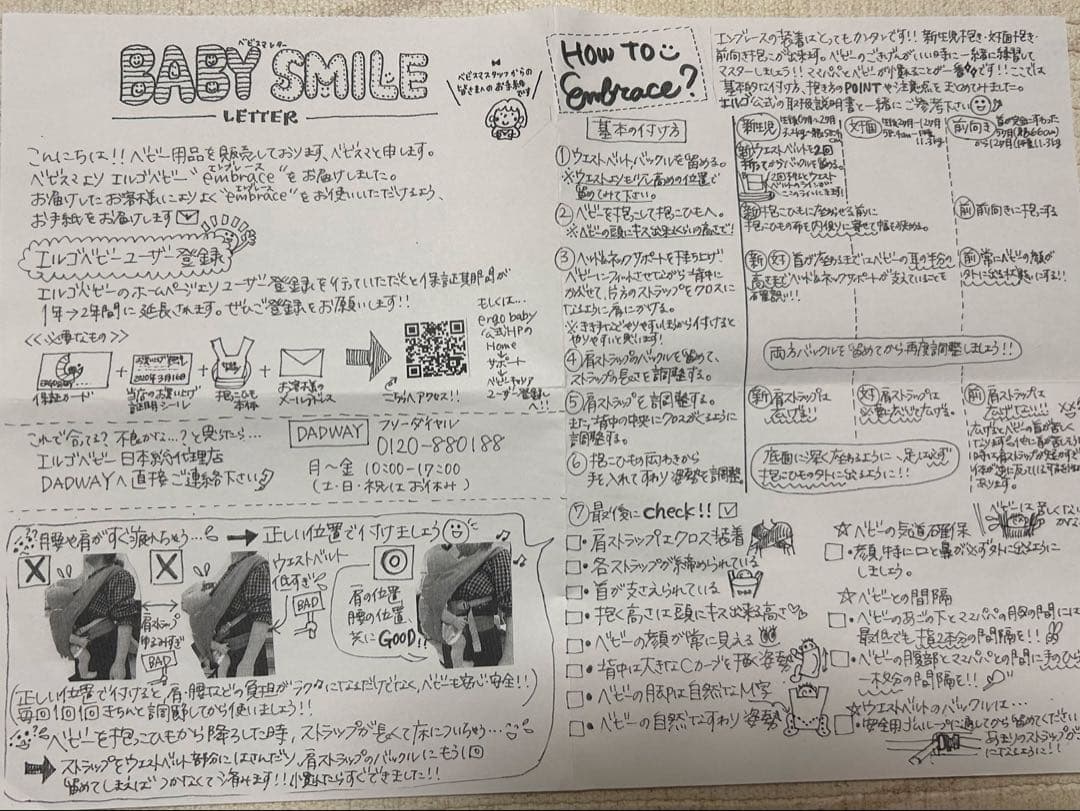 ベビスマレター
BABY SMILE
LETTER
ベビスマスタッフからの
皆さまへのお手紙
です
こんにちは!! ベビー用品を販売しております、ベビスマと申します。
ベビスマより エルゴベビー "embrace" をお届けしました。
エンブレース
お届けしたお客様によりよく "embrace" をお使いいただけるよう、
エンブレース
お手紙をお届けします
エルゴベビーユーザー登録
エルゴベビーのホームページよりユーザー登録を行っていただくと保証期間が
1年→2年間に延長されます。ぜひご登録をお願いします!!
<<必要なもの>>
保証カード
+
お買い上げ証明
2020年3月16日
当店のお買い上げ
証明シール
+
抱っこひも
本体
+
お客様の
メールアドレス
こちらへアクセス!!
もしくは…
ergobaby
公式HPの
Home
サポート
ベビーキャリア
ユーザー登録
へ!!
これで合ってる? 不良かな…? と思ったら…
エルゴベビー日本総代理店
DADWAYへ直接ご連絡下さい
DADWAY
フリーダイヤル
0120-880188
月〜金 10:00-17:00
(土・日・祝はお休み)
腰や肩がすぐ疲れちゃう…
正しい位置で付けましょう
X
肩ストラップ
ゆるみすぎ
BAD
X
ウエストベルト
低すぎ
BAD
肩の位置
腰の位置
共にGOOD!!
正しい位置で付けると肩・腰などの負担がラクになるだけでなく、ベビーも安心安全!!
毎回1回1回きちんと調節してから使いましょう!!
ベビーを抱っこひもから降ろした時、ストラップが長くて床についちゃう…
ストラップをウエストベルト部分にはさんだり、肩ストラップのバックルにもう1回
留めてしまえばつかなくて済みます!! 小敷たらすぐできました!!
How TO
embrace?
エンブレースの装着はとってもカンタンです!! 新生児抱き・対面抱き・
前向き抱っこが出来ます。ベビーのごきげんがいい時に一緒に練習して
マスターしましょう!! ママパパとベビーが慣れることが一番です!! ここでは
基本的な付け方、抱き方のPOINTや注意点をまとめてみました。
エルゴ公式の取扱説明書と一緒にご参考下さい
基本の付け方
①ウエストベルトバックルを留める。
※ウエストよりも少し高めの位置で
留めてみて下さい。
②ベビーを抱っこして抱っこひもへ。
※ベビーの頭にキス出来るくらいの高さで!
③ヘッド&ネックサポートを持ち上げ
ベビーにフィットさせながら背中に
かぶせて、片方のストラップをクロスに
なるように肩にかける。
やりやすいと思います!
④肩ストラップのバックルを留めて、
ストラップの長さを調整する。
⑤肩ストラップを調整する。
また、背中の中央にクロスがくるように
調整する。
⑥抱っこひもの広いわきから
手を入れてすわり姿勢を調整。
新生児
対面
前向き
新 ウエストベルトを2回
折ってからバックルを留める。
新 抱っこひもに座らせる前に
抱っこひもの布を内側に寄せて幅を狭める。
前 前向きに抱っこする
新 対 首が座るまではベビーの耳の半分の
高さまでヘッド&ネックサポートが支えていることを
確認!!
前 常にベビーの顔が
外に出る状態にする!!
両方バックルを留めてから再度調整しましょう!!
新 肩ストラップは
広げる!!
対 肩ストラップは
必要に応じて広げる。
前 肩ストラップは
底面に深く座るように、足は必ず
抱っこひもの外に出るようにする。
⑦最後にcheck!!
・肩ストラップはクロス装着
・各ストラップが締められている
・首が支えられている
・抱く高さは頭にキス出来る高さ
・ベビーの顔が常に見える
・背中は大きなCカーブを描く姿勢
・ベビーの脚は自然なM字
・ベビーの自然なすわり姿勢
☆ベビーの気道確保
・顔、特に口と鼻が必ず外に出るように
しましょう。
☆ベビーとの間隔
・ベビーのあごの下とママパパの胸の間には
最低でも指2本分の間隔を!!
・ベビーの腹部とママパパとの間に手のひら
一本分の間隔を!!
☆ウエストベルトのバックルは…
・安全用ゴムループに通してから留めてください